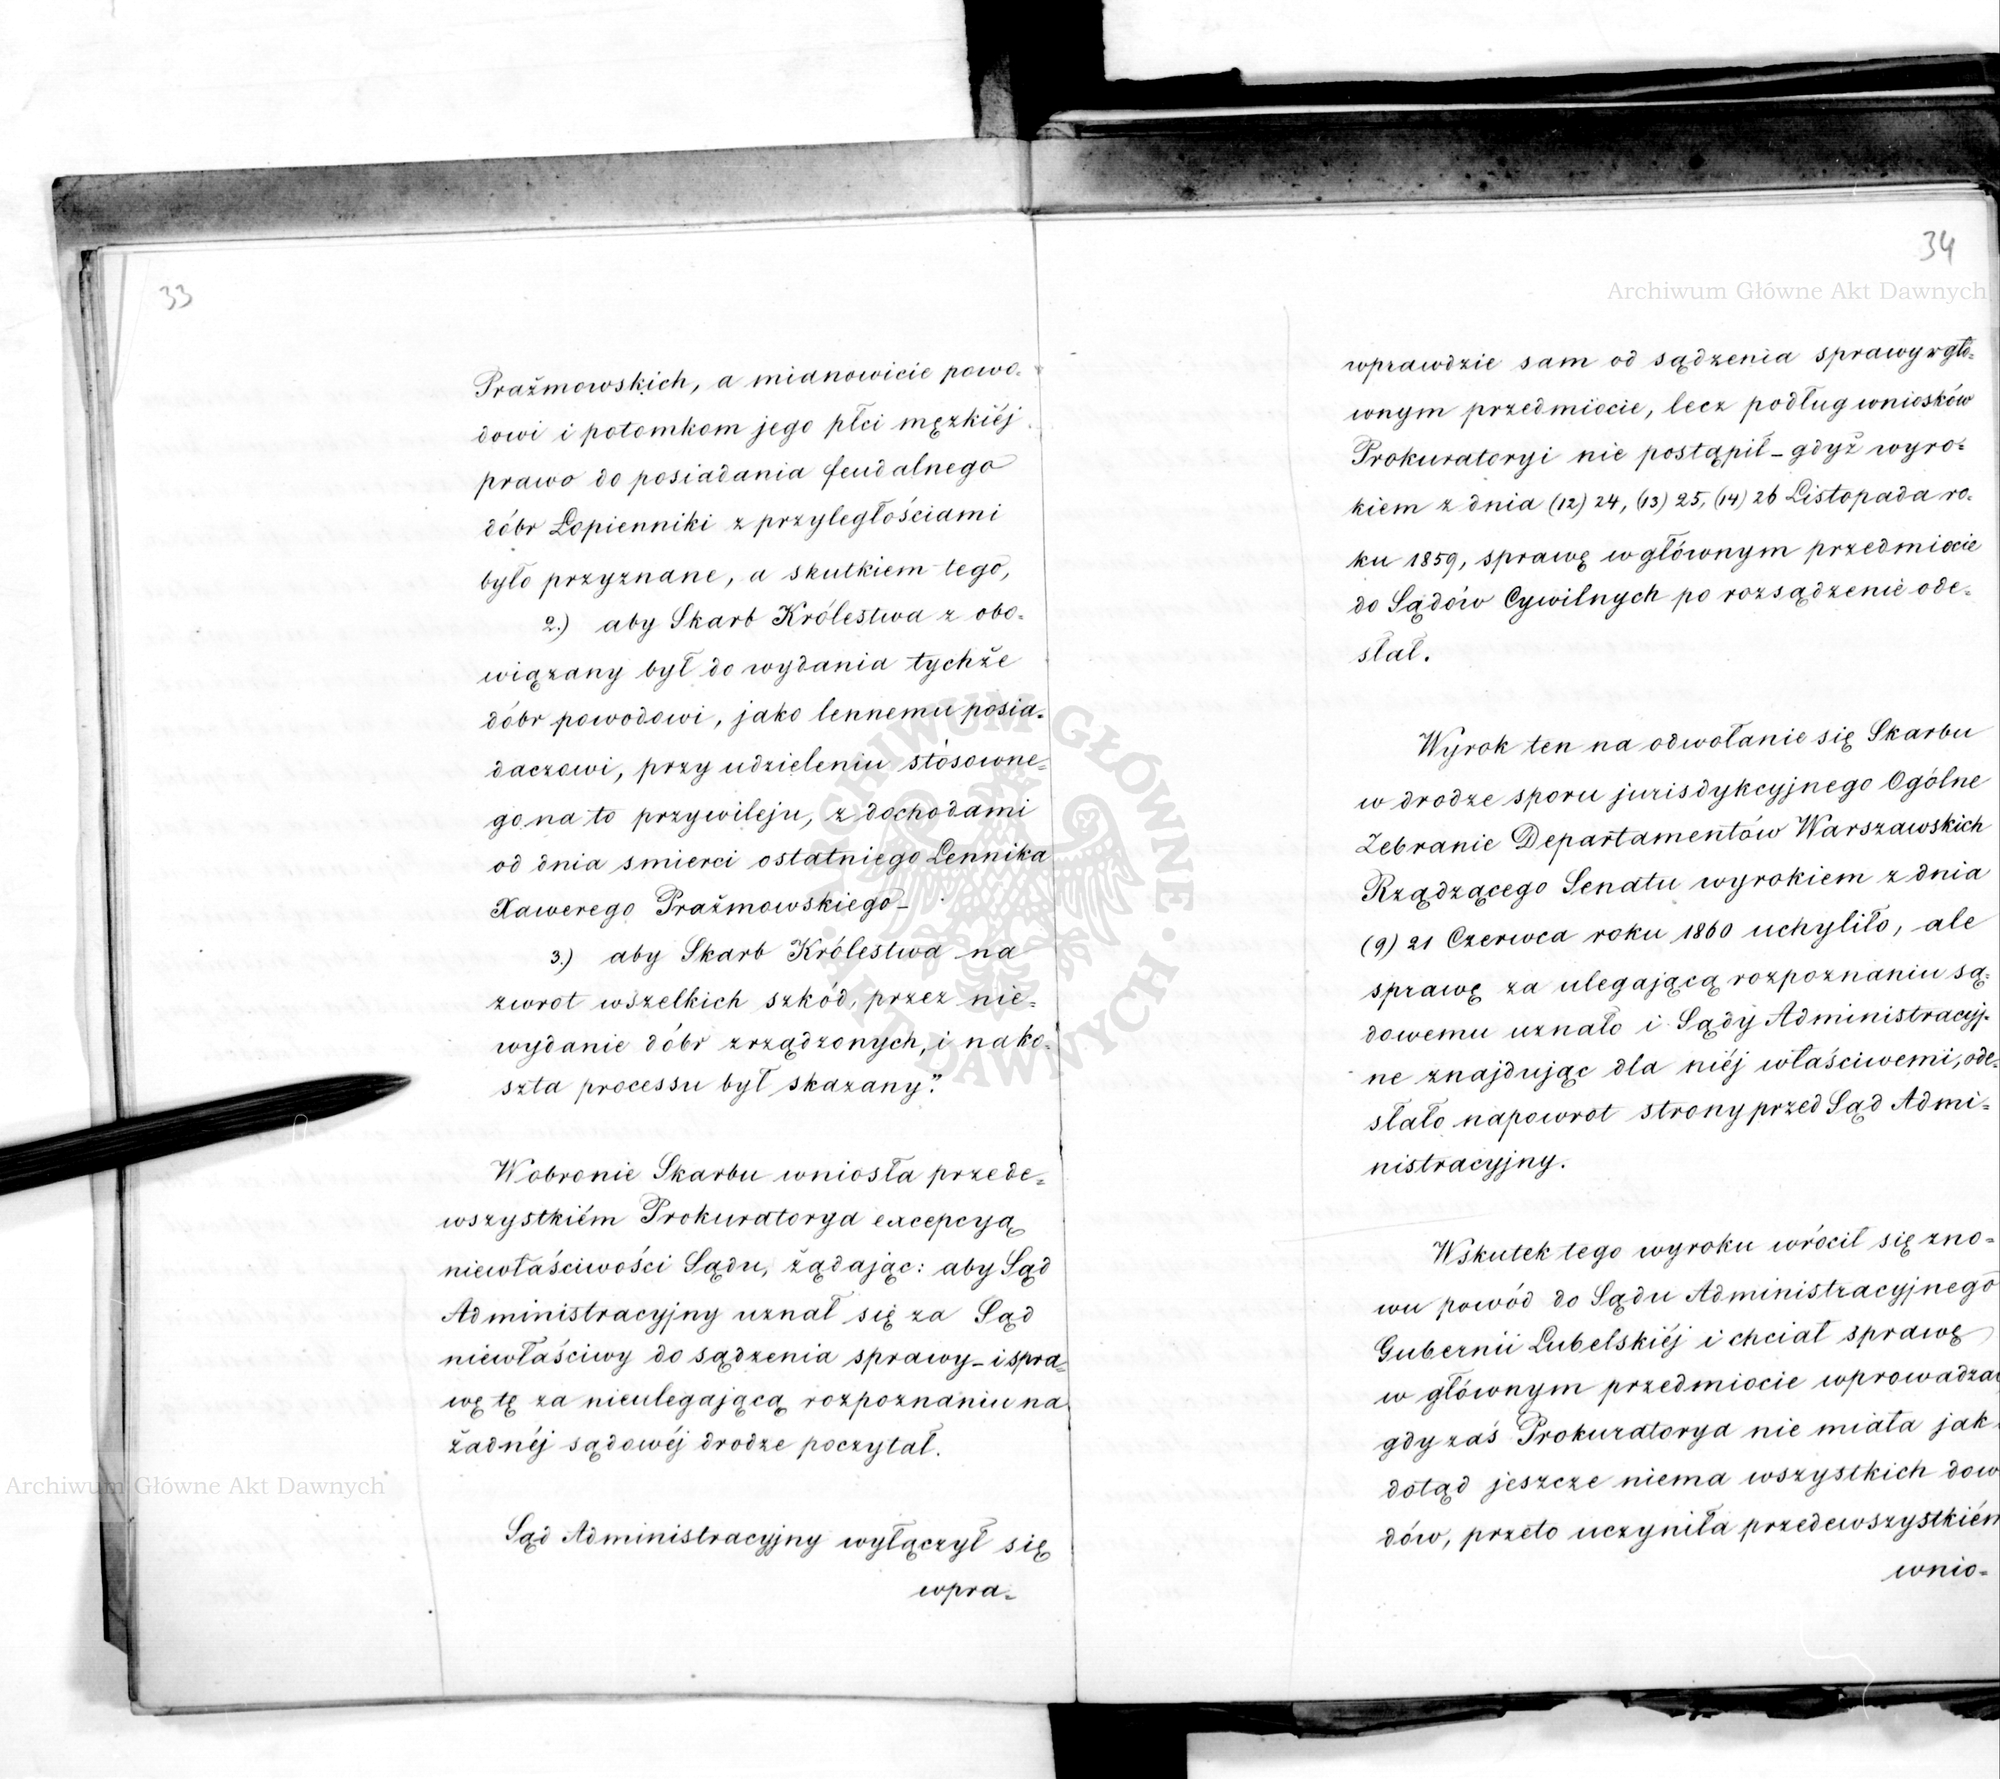 33
Prażmowskich, a mianowicie powo-
dowi i potomkom jego płci męzkiéj
prawo do posiadania feudalnego
dóbr Łopienniki z przyległościami
było przyznane, a skutkiem tego,
2.) aby Skarb Królestwa z obo-
wiązany był do wydania tychże
dóbr powodowi, jako lennemu posia-
daczowi, przy udzieleniu stósowne-
go na to przywileju, z dochodami
od dnia smierci ostatniego Lennika
Xawerego Prażmowskiego-
3.) aby Skarb Królestwa na
zwrot wszelkich szkód, przez nie-
wydanie dóbr zrządzonych, i na ko-
szta processu był skazany".
W obronie Skarbu wniosła przede-
wszystkiém Prokuratorya excepcyą
niewłaściwości Sądu, żądając: aby Sąd
Administracyjny uznał się za Sąd
niewłaściwy do sądzenia sprawy - i spra-
wę tę za nieulegającą rozpoznaniu na
żadnéj sądowéj drodze poczytał.
Sąd Administracyjny wyłączył się
wpra-
34
wprawdzie sam od sądzenia sprawy w głó-
wnym przedmiocie, lecz podług wniosków
Prokuratoryi nie postąpił - gdyż wyro-
kiem z dnia (12) 24, (13) 25, (14) 26 Listopada ro-
ku 1859, sprawę w głównym przedmiocie
do Sądów Cywilnych po rozsądzenie ode-
słał.
Wyrok ten na odwołanie się Skarbu
w drodze sporu jurisdykcyjnego Ogólne
Zebranie Departamentów Warszawskich
Rządzącego Senatu wyrokiem z dnia
(9) 21 Czerwca roku 1860 uchyliło, ale
sprawę za ulegającą rozpoznaniu są-
dowemu uznało i Sądy Administracyj-
ne znajdując dla niéj właściwemi, ode-
słało napowrot strony przed Sąd Admi-
nistracyjny.
Wskutek tego wyroku wrócił się zno-
wu powód do Sądu Administracyjnego
Gubernii Lubelskiéj i chciał sprawę
w głównym przedmiocie wprowadzać
gdy zaś Prokuratorya nie miała jak
dotąd jeszcze niema wszystkich dow
dów, przeto uczyniła przedewszystkiém
wnio-
Archiwum Główne Akt Dawnych
Archiwum Główne Akt Dawnych
ARCHIWUM GŁÓWNE AKT DAWNYCH